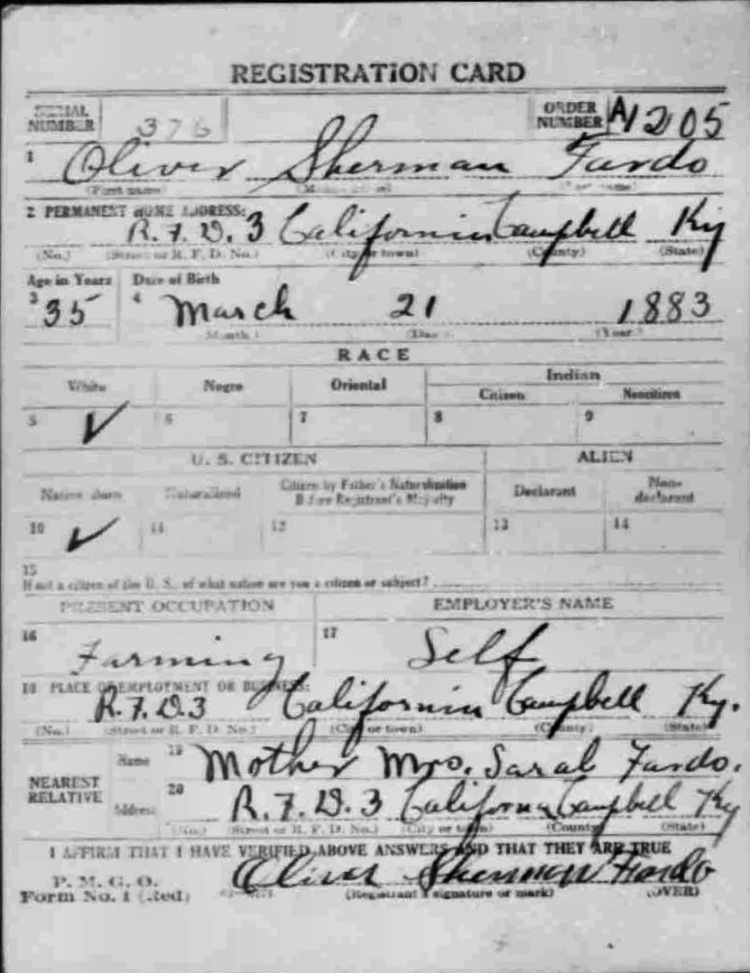 REGISTRATION CARD
SERIAL NUMBER 376 ORDER NUMBER A1205
1 Oliver Sherman Fardo
(First name) (Middle name) (Last name)
2 PERMANENT HOME ADDRESS:
R.F.D. 3 California Campbell Ky
(No.) (Street or R. F. D. No.) (City or town) (County) (State)
Age in Years Date of Birth
3 35 4 March 21 1883
(Month) (Day) (Year)
RACE
White Negro Oriental Indian
Citizen Noncitizen
5 ✓ 6 7 8 9
U. S. CITIZEN ALIEN
Native Born Naturalized Citizen by Father's Naturalization Before Registrant's Majority Declarant Non-declarant
10 ✓ 11 12 13 14
15
If not a citizen of the U. S., of what nation are you a citizen or subject?
PRESENT OCCUPATION EMPLOYER'S NAME
16 Farming 17 Self
18 PLACE OF EMPLOYMENT OR BUSINESS:
R.F.D.3 California Campbell Ky.
(No.) (Street or R. F. D. No.) (City or town) (County) (State)
NEAREST RELATIVE
Name 19 Mother Mrs. Sarah Fardo.
Address 20 R.F.D. 3 California Campbell Ky
(No.) (Street or R. F. D. No.) (City or town) (County) (State)
I AFFIRM THAT I HAVE VERIFIED ABOVE ANSWERS AND THAT THEY ARE TRUE
P. M. G. O.
Form No. 1 (Red) Oliver Sherman Fardo
(Registrant's signature or mark) (OVER)